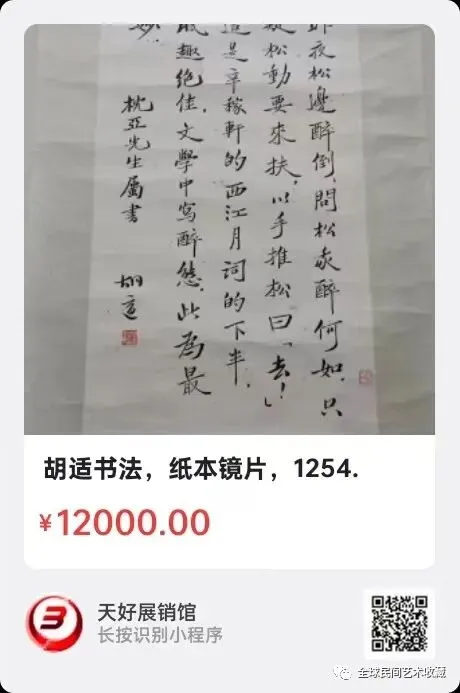 昨夜松邊醉倒，問松我醉何如。只
疑松動要來扶，以手推松曰「去！」
這是辛稼軒的西江月詞的下半，
趣絕佳。文學中寫醉態，此爲最
妙
枕亞先生屬書
胡適
胡适书法，纸本镜片，1254.
¥12000.00
天好展销馆
长按识别小程序
全球民间艺术收藏